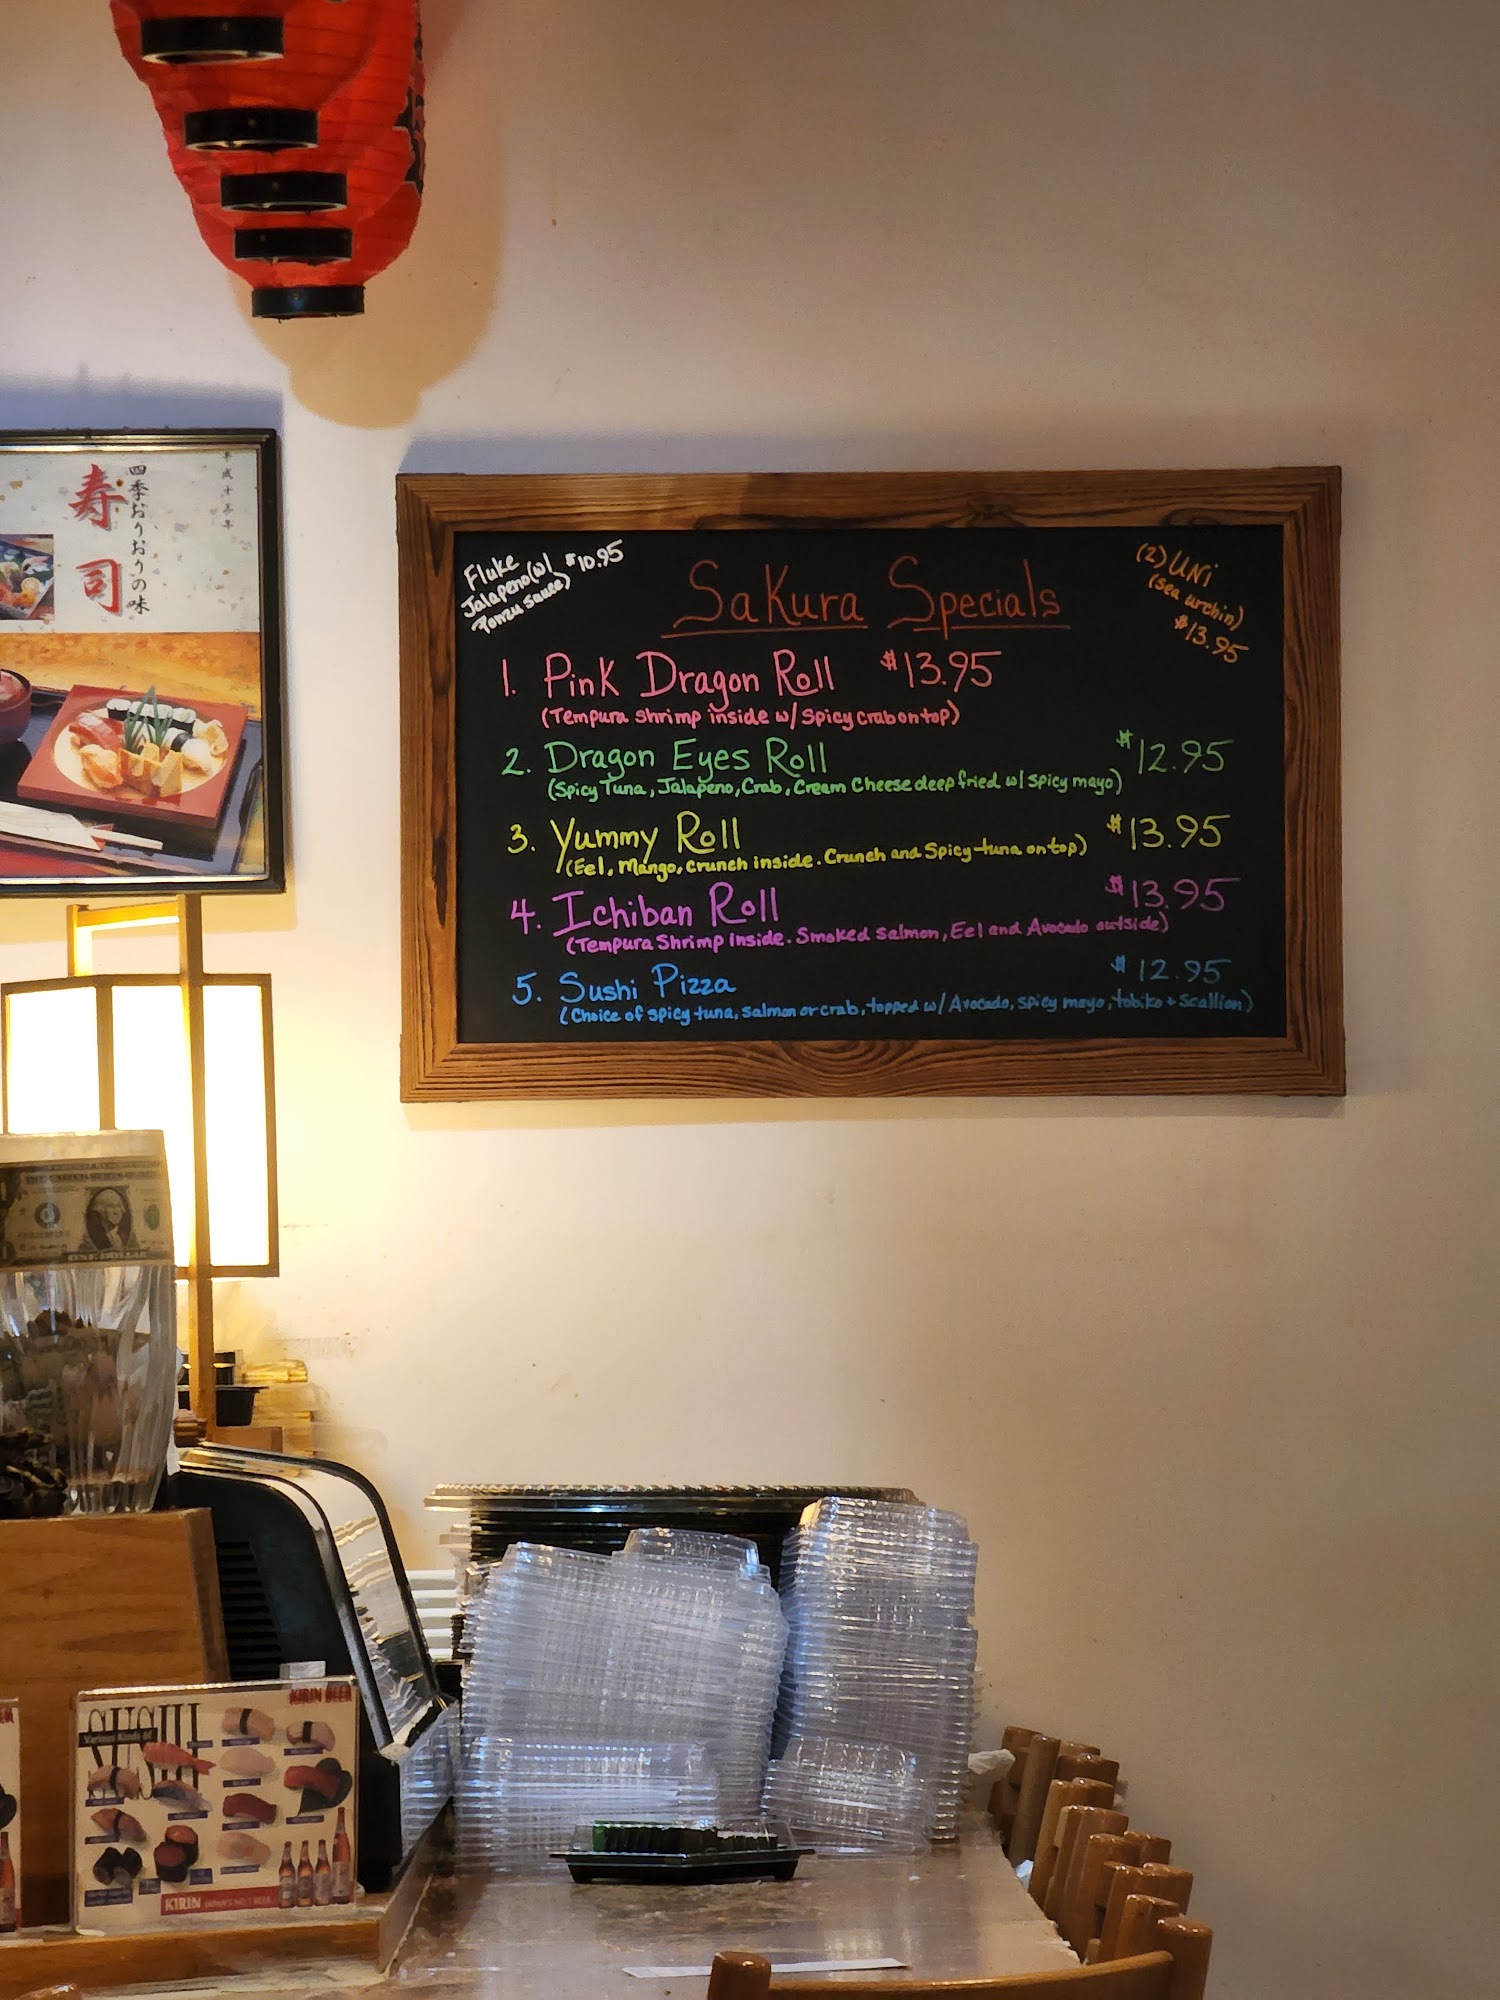 寿司
四季おりおりの味
Fluke
Jalapeno(w/
Ponzu sauce) $10.95
Sakura Specials
(2) UNi
(sea urchin)
$13.95
1. Pink Dragon Roll $13.95
(Tempura shrimp inside w/ Spicy crab on top)
2. Dragon Eyes Roll $12.95
(Spicy Tuna, Jalapeno, Crab, Cream Cheese deep fried w/ spicy mayo)
3. Yummy Roll $13.95
(Eel, Mango, crunch inside. Crunch and Spicy tuna on top)
4. Ichiban Roll $13.95
(Tempura Shrimp Inside. Smoked salmon, Eel and Avocado outside)
5. Sushi Pizza $12.95
(Choice of spicy tuna, salmon or crab, topped w/ Avocado, spicy mayo, tobiko + scallion)
ONE DOLLAR
KIRIN BEER
SUSHI
KIRIN